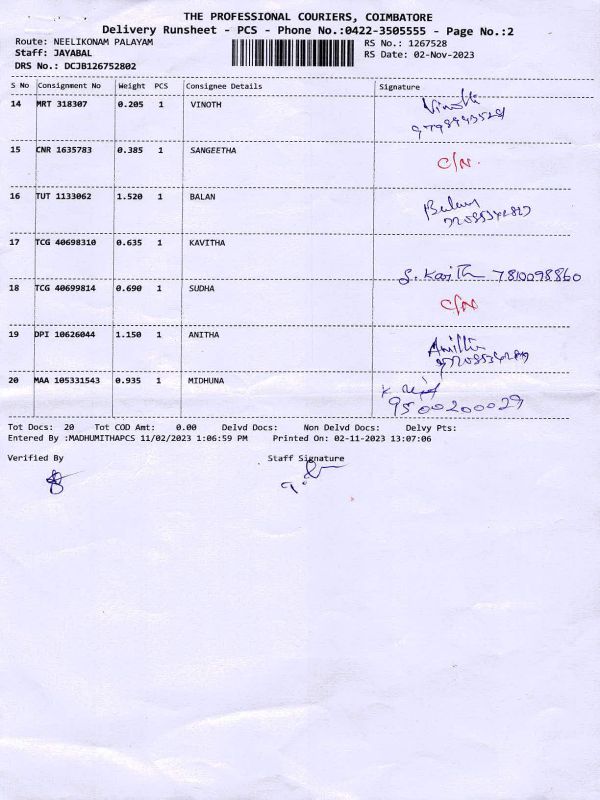 THE PROFESSIONAL COURIERS, COIMBATORE
Delivery Runsheet - PCS - Phone No.:0422-3505555 - Page No.:2
Route: NEELIKONAM PALAYAM RS No.: 1267528
Staff: JAYABAL RS Date: 02-Nov-2023
DRS No.: DCJB126752802
S No Consignment No Weight PCS Consignee Details Signature
14 MRT 318307 0.205 1 VINOTH Vinoth
15 CNR 1635783 0.385 1 SANGEETHA C/N.
16 TUT 1133062 1.520 1 BALAN Balan
17 TCG 40698310 0.635 1 KAVITHA
S. Kavitha 7810098860
18 TCG 40699814 0.690 1 SUDHA C/N
19 DPI 10626044 1.150 1 ANITHA Anitha
20 MAA 105331543 0.935 1 MIDHUNA
9500200029
Tot Docs: 20 Tot COD Amt: 0.00 Delvd Docs: Non Delvd Docs: Delvy Pts:
Entered By :MADHUMITHAPCS 11/02/2023 1:06:59 PM Printed On: 02-11-2023 13:07:06
Verified By Staff Signature